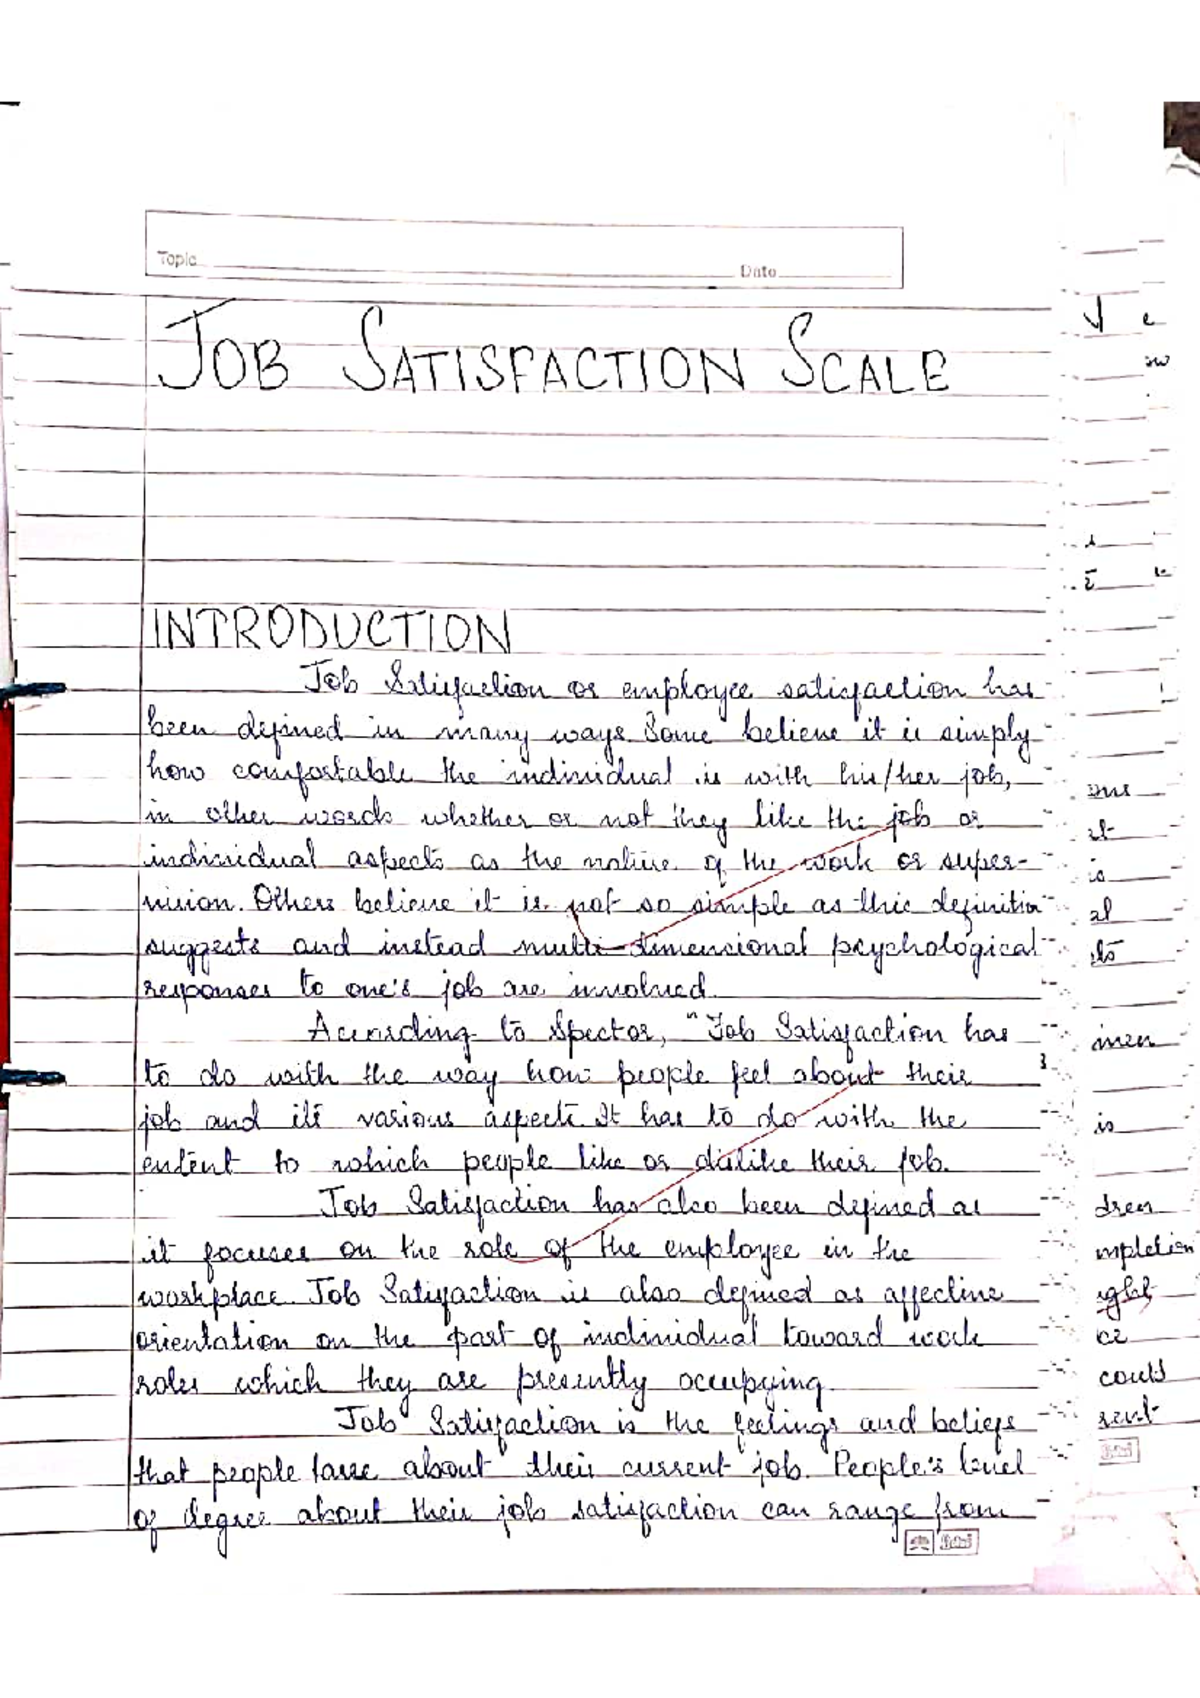 Topic Date
JOB SATISFACTION SCALE
INTRODUCTION
Job Satisfaction or employee satisfaction has
been defined in many ways. Some believe it is simply
how comfortable the individual is with his/her job,
in other words whether or not they like the job or
individual aspects as the nature of the work or super-
vision. Others believe it is not so simple as this definition
suggests and instead multi-dimensional psychological
responses to one's job are involved.
According to Spector, "Job Satisfaction has
to do with the way how people feel about their
job and its various aspects. It has to do with the
extent to which people like or dislike their job.
Job Satisfaction has also been defined as
it focuses on the role of the employee in the
workplace. Job Satisfaction is also defined as affective
orientation on the part of individual toward work
roles which they are presently occupying.
Job Satisfaction is the feelings and beliefs
that people have about their current job. People's level
of degree about their job satisfaction can range from
ow
ons
et
is
al
men
is
dren
mpletion
ight
ce
could
sent